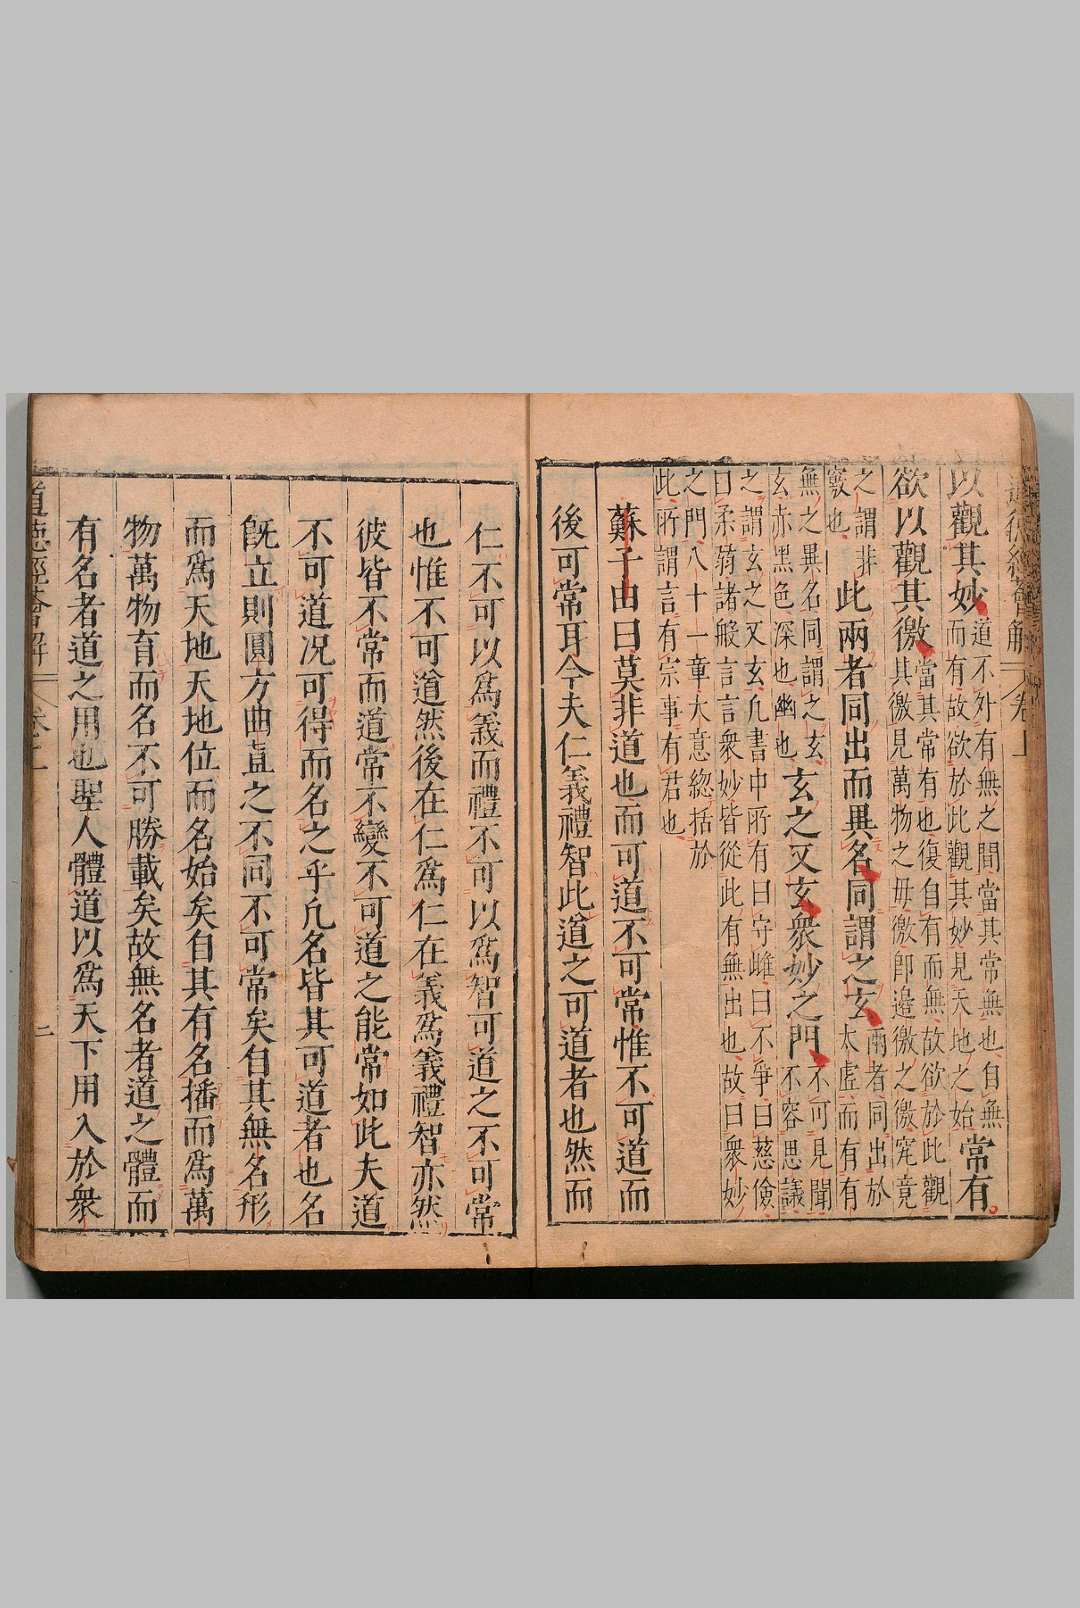 道德經薈解 卷上
以觀其妙道不外有無之間當其常無也自無
而有故欲於此觀其妙見天地之始常有
欲以觀其徼當其常有也復自有而無故欲於此觀
其徼見萬物之母徼卽邊徼之徼究竟
之謂非
竅也此兩者同出而異名同謂之玄兩者同出於
太虛而有有
無之異名同謂之玄
玄亦黑色深也幽也玄之又玄衆妙之門不可見聞
不容思議
之謂玄之又玄凡書中所有曰守雌曰不爭曰慈儉
曰柔弱諸般言言衆妙皆從此有無出也故曰衆妙
之門八十一章大意緫括於
此所謂言有宗事有君也
蘇子由曰莫非道也而可道不可常惟不可道而
後可常耳今夫仁義禮智此道之可道者也然而
仁不可以爲義而禮不可以爲智可道之不可常
也惟不可道然後在仁爲仁在義爲義禮智亦然
彼皆不常而道常不變不可道之能常如此夫道
不可道况可得而名之乎凡名皆其可道者也名
旣立則圓方曲直之不同不可常矣自其無名形
而爲天地天地位而名始矣自其有名播而爲萬
物萬物育而名不可勝載矣故無名者道之體而
有名者道之用也聖人體道以爲天下用入於衆
道德經薈解 卷上 二